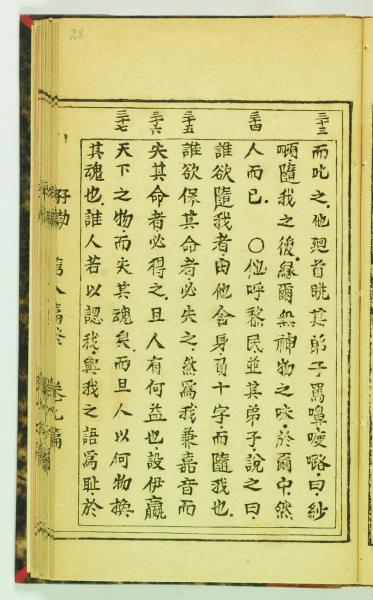 28
三十三
而叱之他廻首眺其弟子罵嚊𠵽咯曰紗
嚬隨我之後縁爾無神物之味於爾中然
三十四
人而已〇他呼黎民並其弟子說之曰
誰欲隨我者由他舍身負十字而隨我也
三十五
誰欲保其命者必失之然為我兼嘉音而
三十六
失其命者必得之且人有何益也設伊贏
三十七
天下之物而失其魂矣而且人以何物換
其魂也誰人若以認我與我之語為耻於